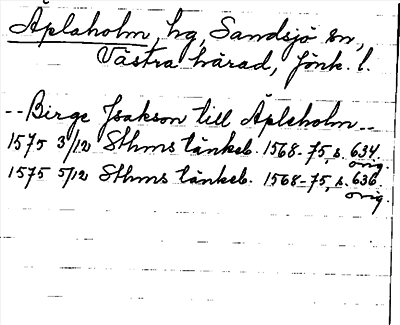 Äplaholm, hg, Sandsjö sn,
Västra härad, Jönk. l.
-- Birge Isakson till Äpleholm --
1575 3/12 Sthms tänkeb. 1568-75, s. 634.
orig.
1575 5/12 Sthms tänkeb. 1568-75, s. 636.
orig.